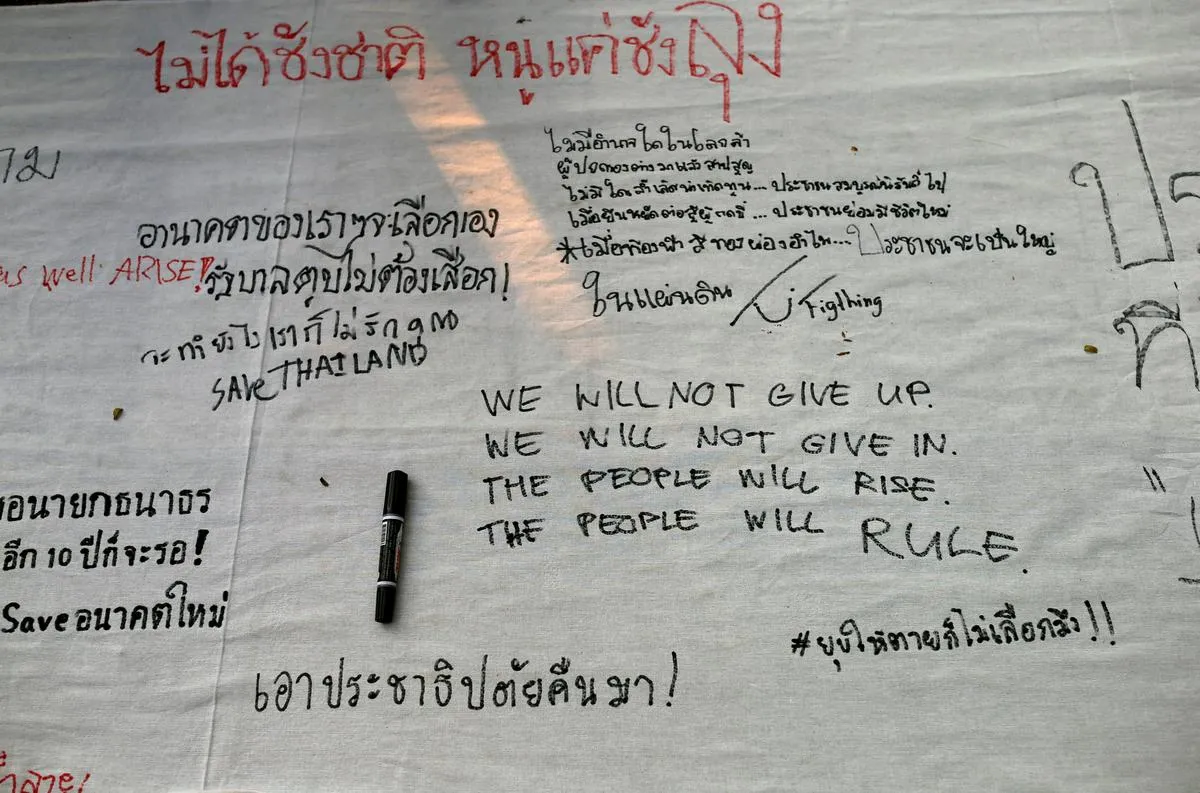 ไม่ได้ชังชาติ หนูแค่ชังลุง
ไม่มีอำนาจใดในโลกล้ำ
ผู้ปกครองต่างมาแล้วสาปสูญ
ไม่มีใครล้ำเลิศน่าเทิดทูน... ประชาชนสมบูรณ์นิรันดิ์ไป
เมื่อยืนหยัดต่อสู้ผู้กดขี่ ... ประชาชนย่อมมีชีวิตใหม่
*เมื่อท้องฟ้าสีทองผ่องอำไพ... ประชาชนจะเป็นใหญ่
ในแผ่นดิน Figthing
อานาคตของเราๆจะเลือกเอง
us well ARISE!
รัฐบาลตูบไม่ต้องเสือก!
จะทำยังไงเราก็ไม่รัก
SAVE THAILAND
WE WILL NOT GIVE UP.
WE WILL NOT GIVE IN.
THE PEOPLE WILL RISE.
THE PEOPLE WILL RULE.
รอนายกธนาธร
อีก 10 ปีก็จะรอ!
Saveอนาคตใหม่
#ยุบให้ตายก็ไม่เลือกมึง!!
เอาประชาธิปตัยคืนมา!